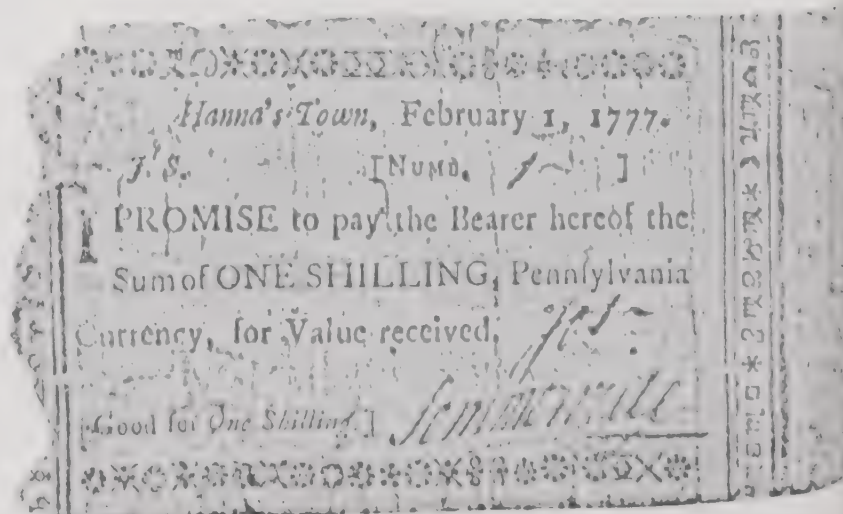 Hanna's Town, February 1, 1777.
J. S. [NUMB. ]
I PROMISE to pay the Bearer hereof the
Sum of ONE SHILLING, Pennſylvania
Currency, for Value received,
[Good for One Shilling.]